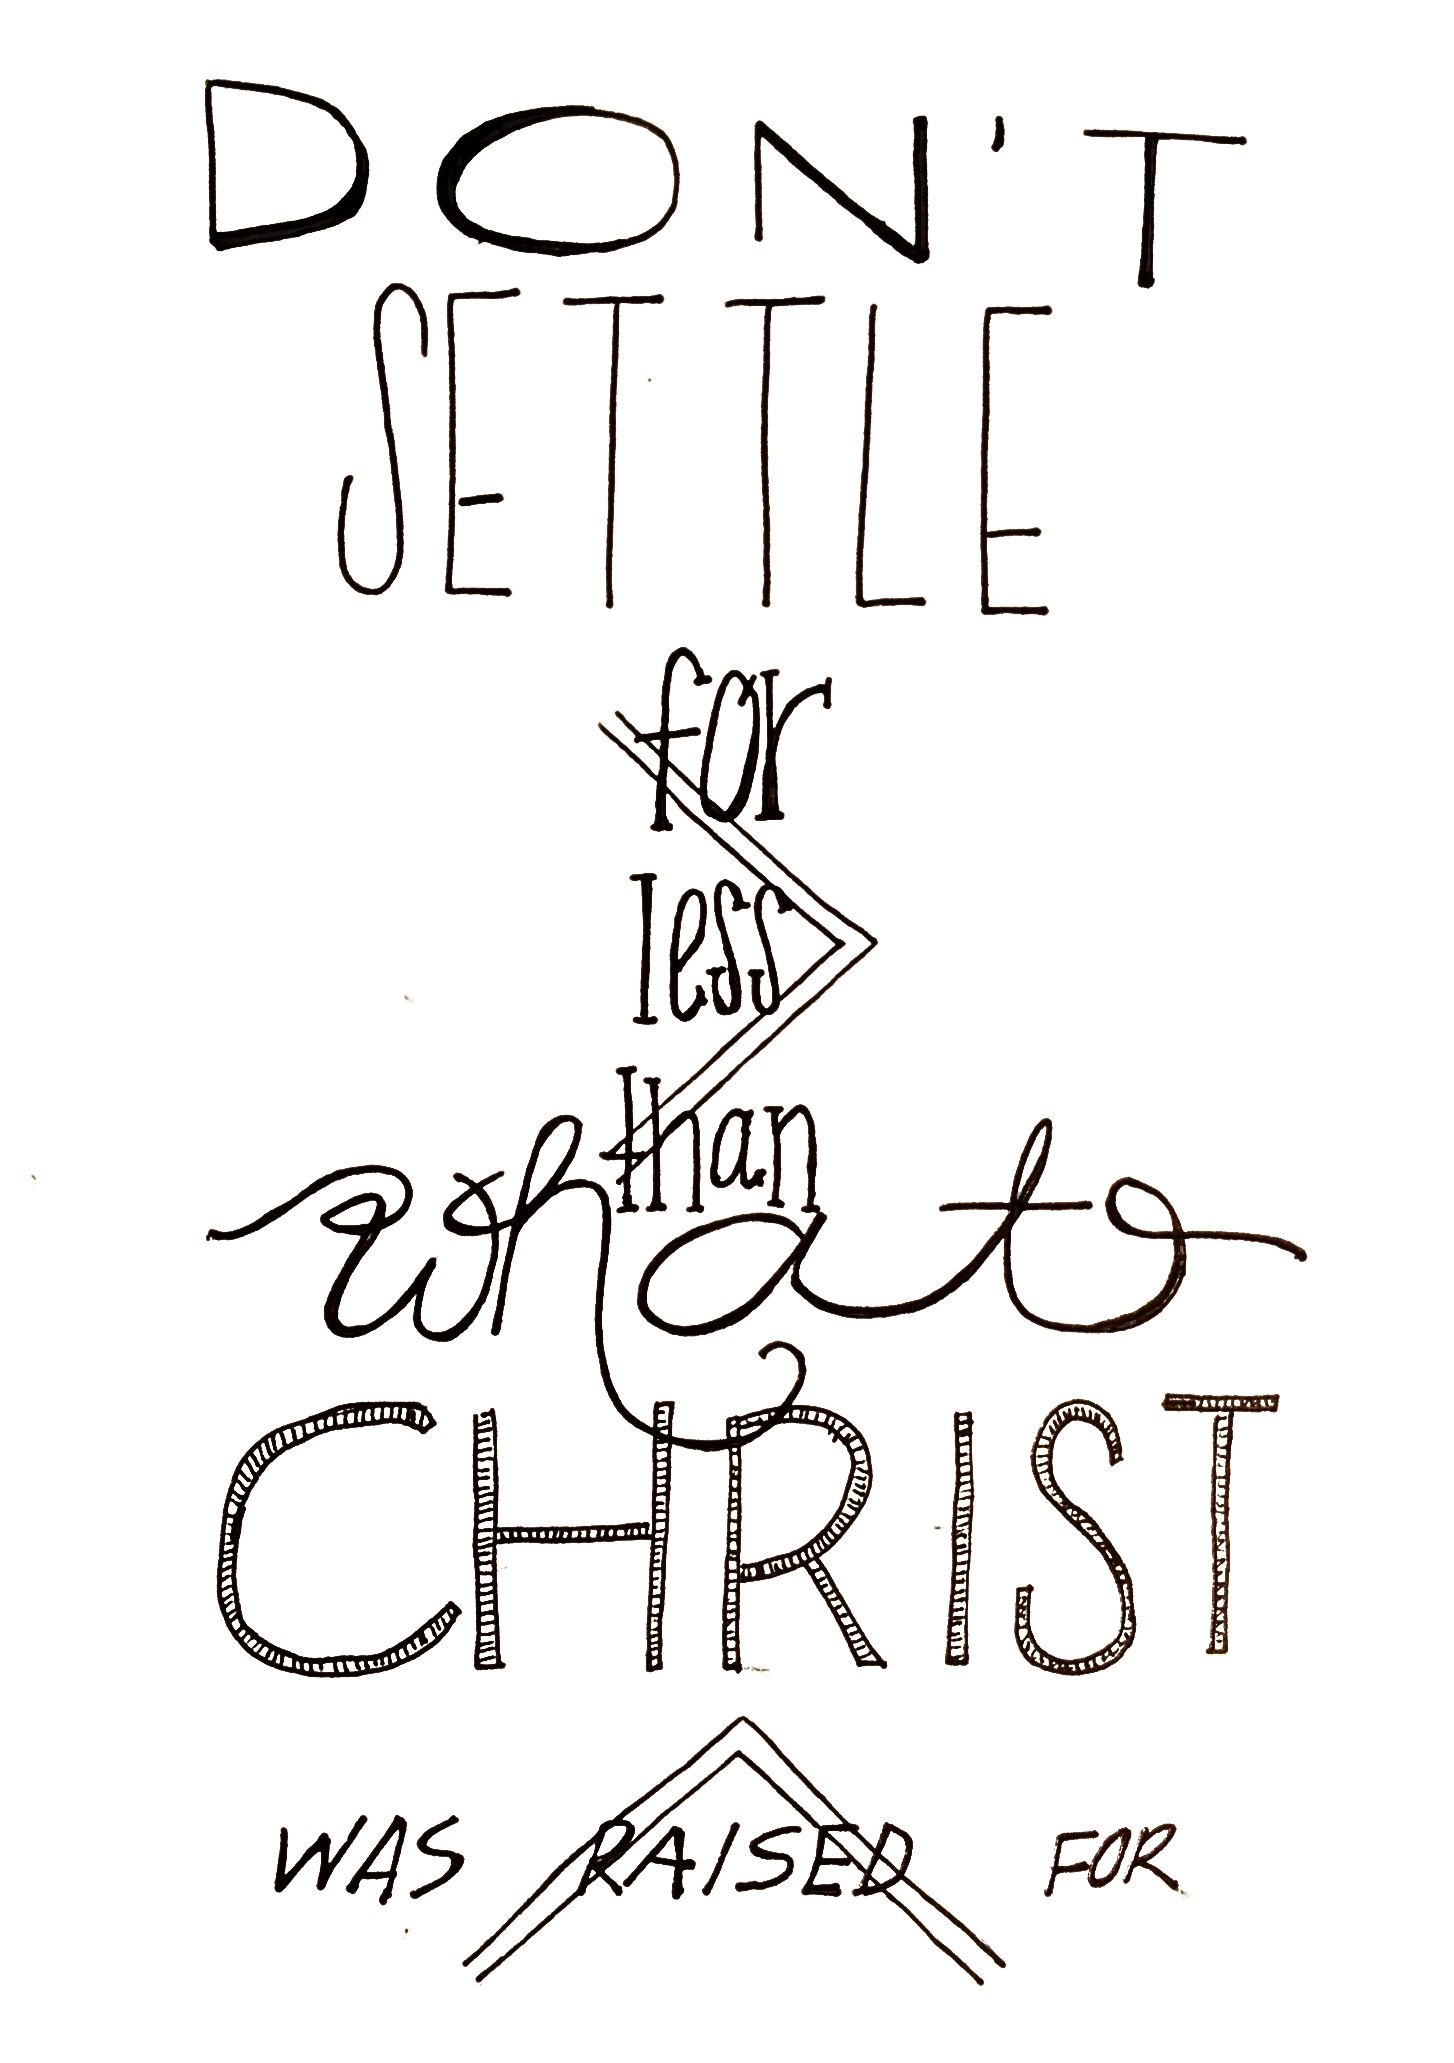 DON'T
SETTLE
for
less
than
what
CHRIST
WAS RAISED FOR